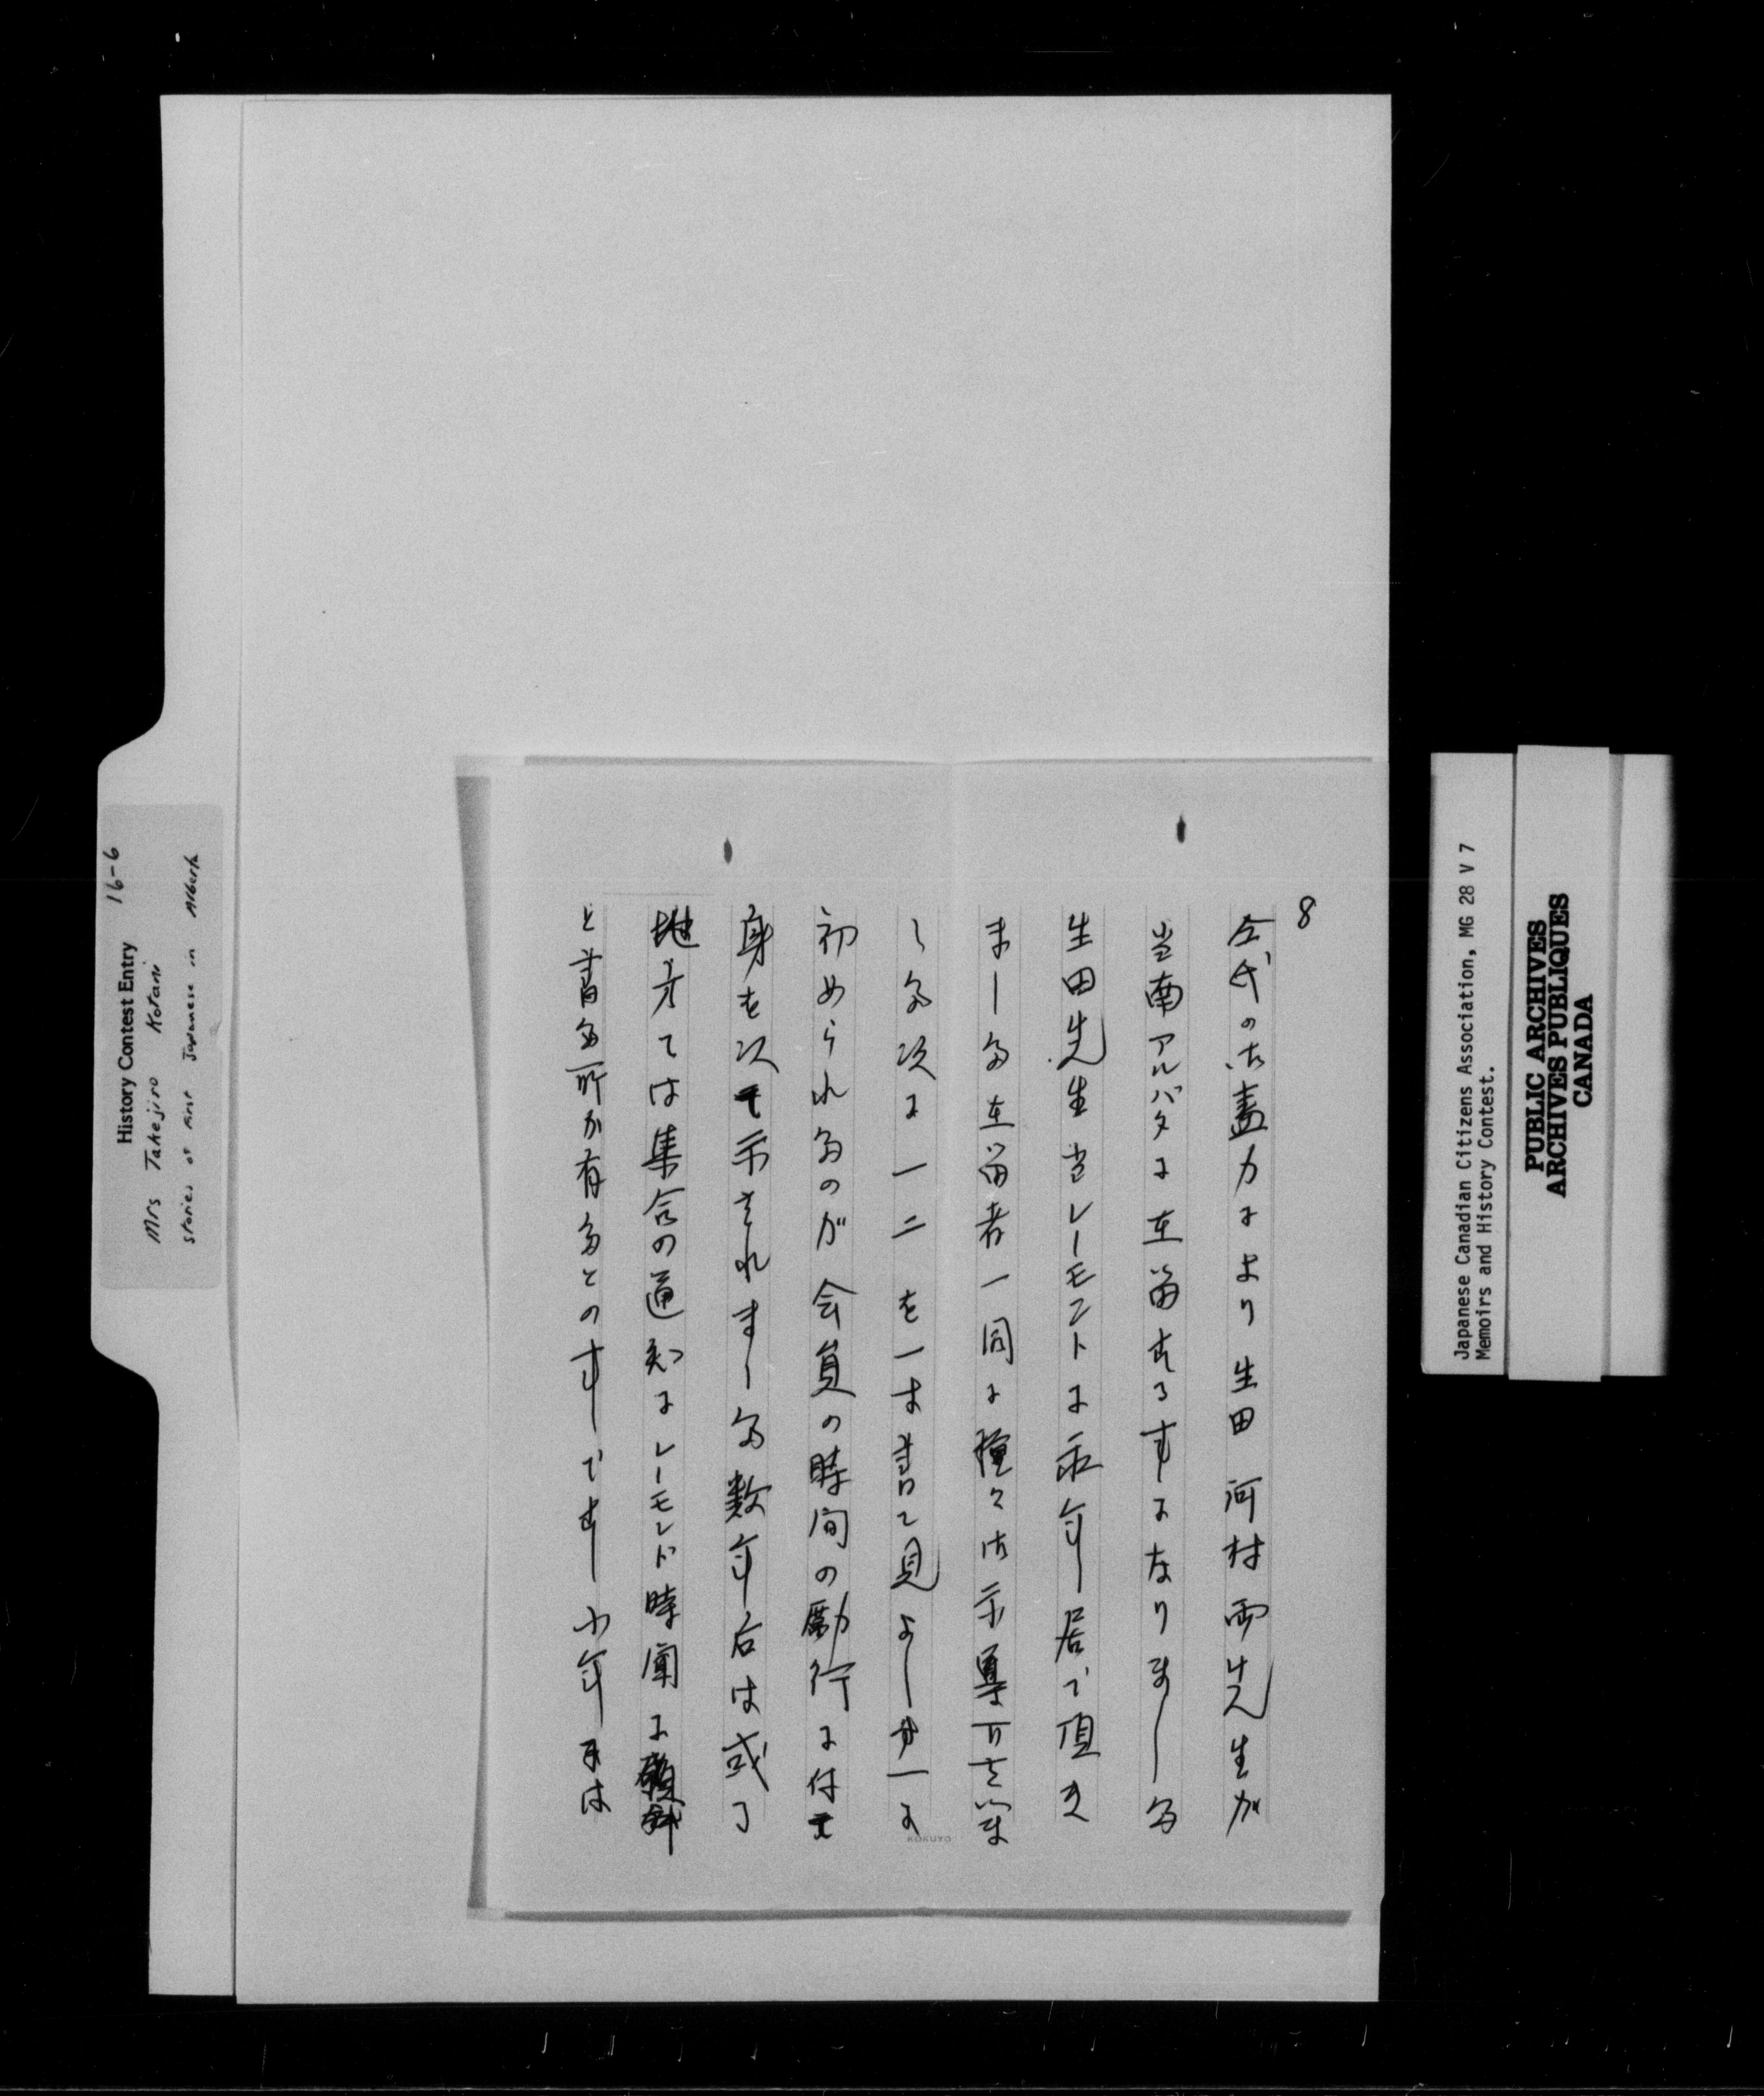 History Contest Entry 16-6
Mrs Takejiro Kotani
Stories of First Japanese in Alberta
8
氏の御尽力により生田 河村両先生が
当南アルバタに在留するすになりました
生田先生当レーモントに永年居て頂き
ました在留者一同に種々御示導下さいま
した次に一二を一寸書て見よう 一に
初められたのが会員の時間の励行に付て
身を以て示されました数年后は或る
地方では集会の通知にレーモンド時間に
と書た所が有たとのすです 少年には
KOKUYO
Japanese Canadian Citizens Association, MG 28 V 7
Memoirs and History Contest.
PUBLIC ARCHIVES
ARCHIVES PUBLIQUES
CANADA